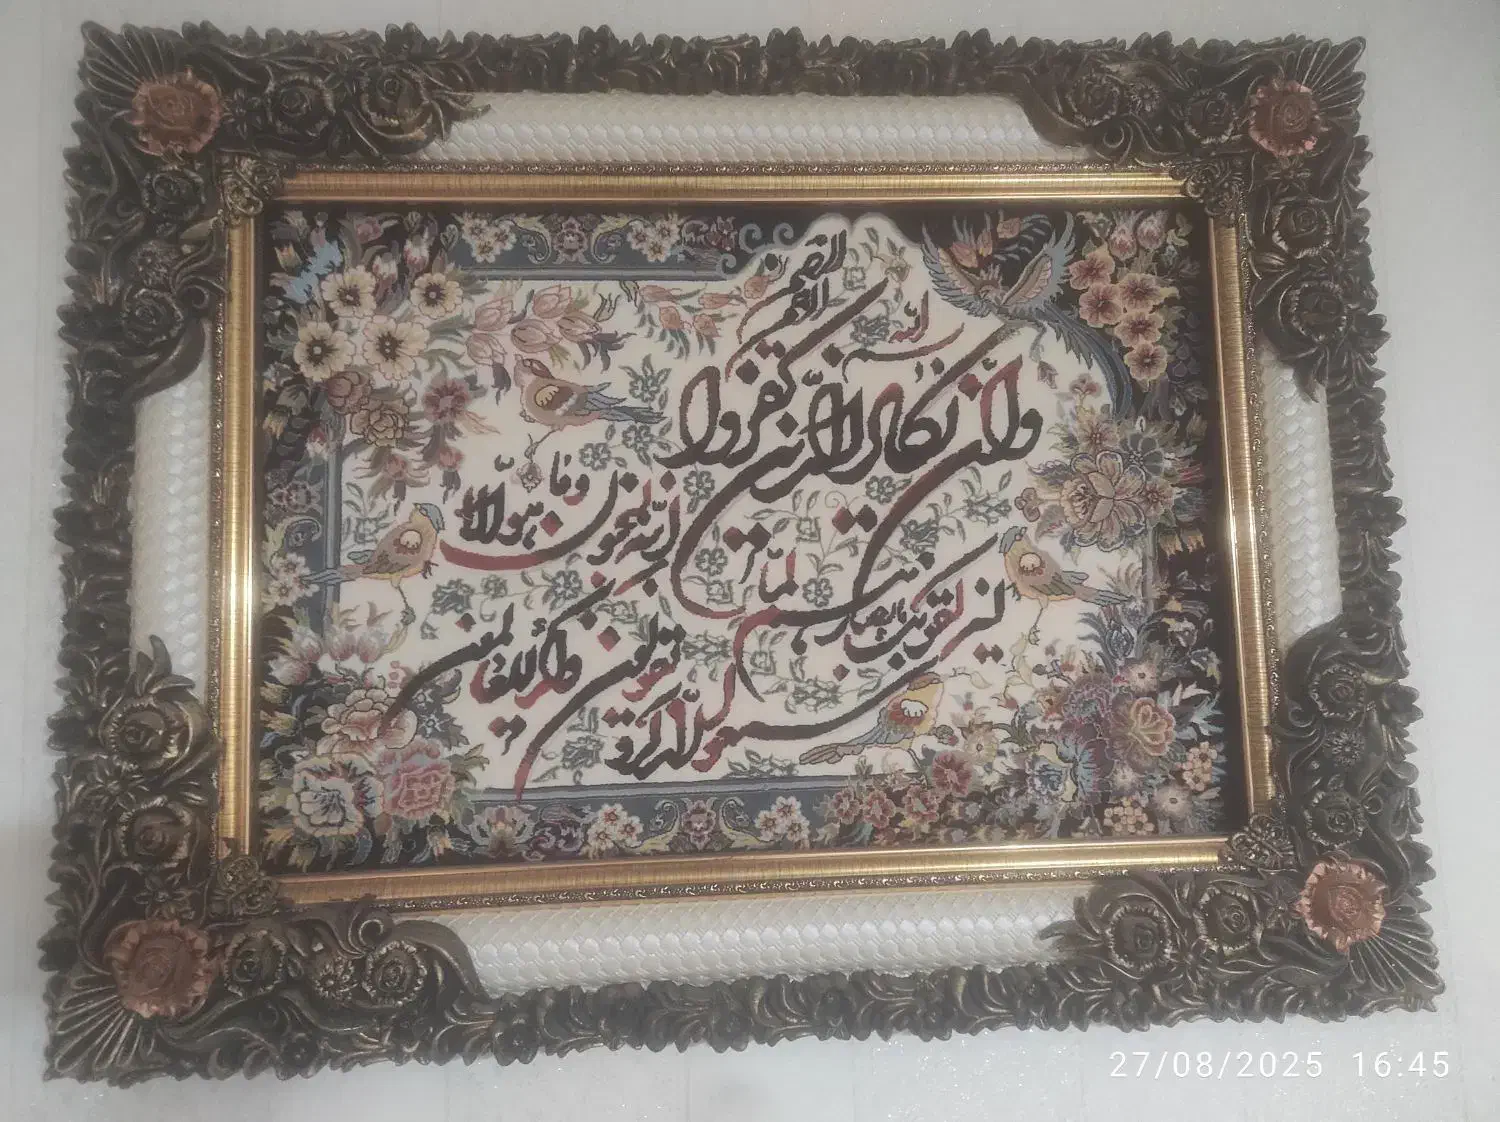 بسم الله
الرحمن الرحیم
وان یکاد الذین کفروا
لیزلقونک بابصارهم لما
سمعوا الذکر و یقولون
انه لمجنون وما هو الا
ذکر للعالمین
27/08/2025 16:45